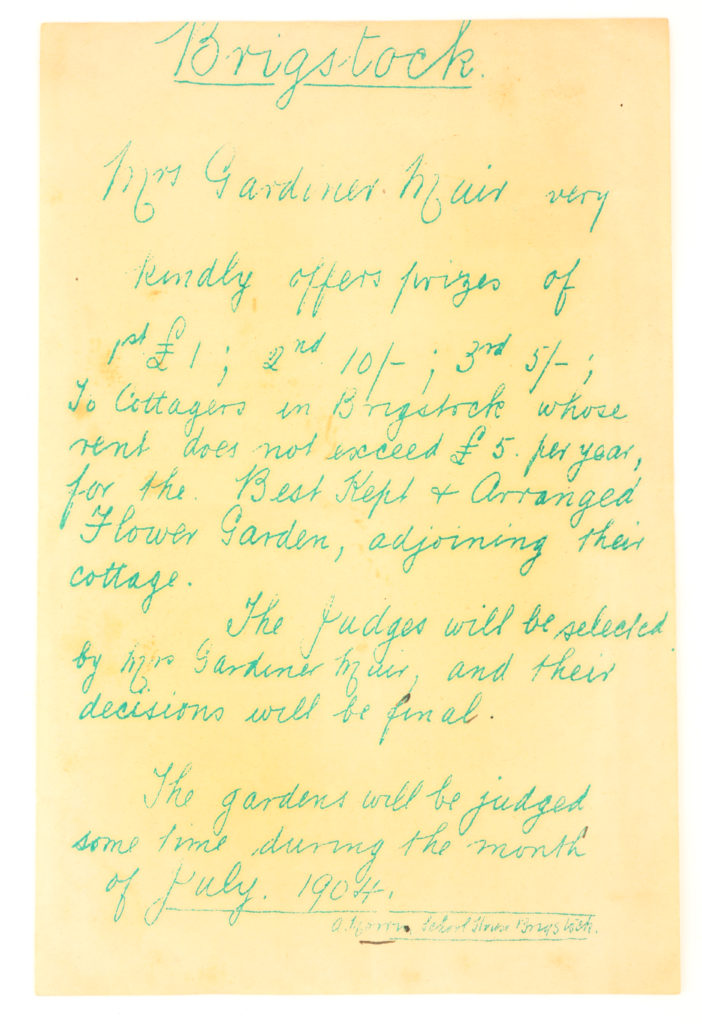 Brigstock.
Mrs Gardiner Muir very
kindly offers prizes of
1st £1; 2nd 10/-; 3rd 5/-;
To Cottagers in Brigstock whose
rent does not exceed £5. per year,
for the. Best Kept & Arranged
Flower Garden, adjoining their
cottage.
The Judges will be selected
by Mrs Gardiner Muir, and their
decisions will be final.
The gardens will be judged
some time during the month
of July. 1904.
A. School House Brigstock.